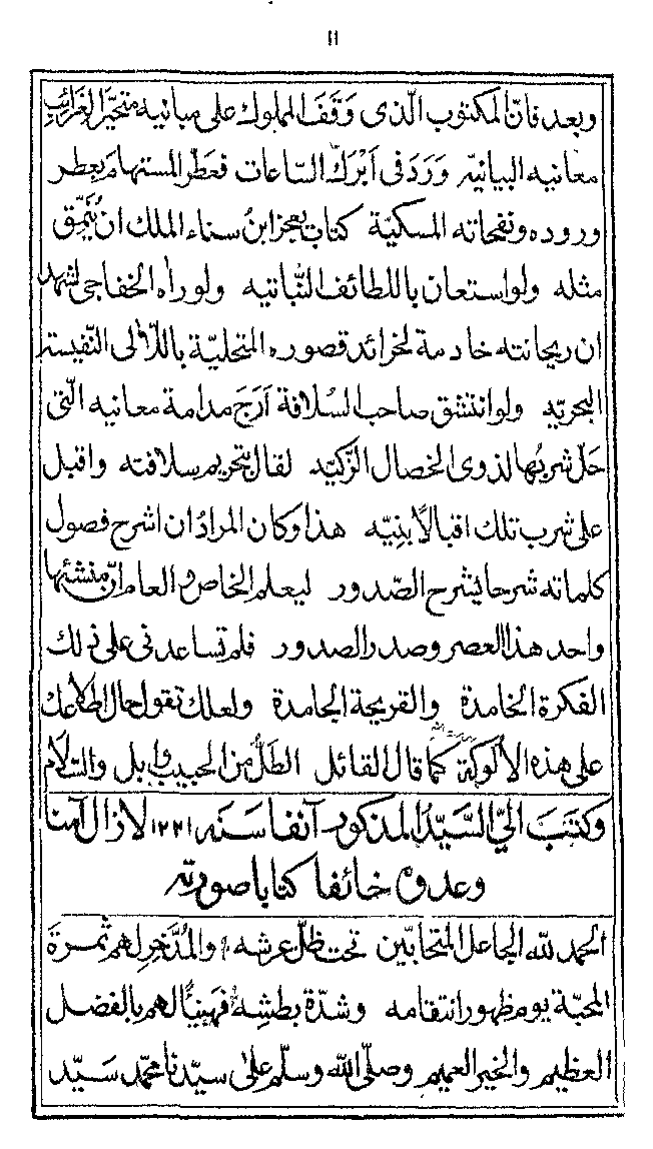 ١١
وبعد فانّ المكتوب الّذى وَقَفَ المملوك على مبانيه متحيّرًا لغرائب
معانيه البيانيّه وَرَدَ فى اَبْرَك السّاعات فعَطّر المستهام بَعِطر
وروده ونفحاته المسكيّة كتاب يعجز ابنُ سناء الملك ان يُنَمِّق
مثله ولو استعان باللطائف النّباتيه ولو راٰه الخفاجى لشهد
ان ريحانته خادمة لخرائد قصوره المتحليّة باللآلى النّفيسة
البحريّه ولو انتشق صاحب السُلافة اَرَجَ مدامة معانيه الّتى
حَلّ شربُها لذوى الخصال الزّكيّه لقال بتحريم سلافته واقبل
على شرب تلك اقبالاً بِنِيّه هذا وكان المرادُ ان اشرح فصول
كلماته شرحا يشرح الصّدور ليعلم الخاص والعام انّ منشئها
واحد هذا العصر وصدر الصدور فلم تساعدنى على ذلك
الفكرة الخامدة والقريحة الجامدة ولعلك تقول حال اطلاعك
على هذه الالوكة كما قال القائل الطَلُّ من الحبيب وابل والسّلام
وكَتَبَ اليّ السَّيّدُ المذكور آنفا سَنَه ١٢٢١ لازال آمنا
وعدوه خائفا كتابا صورته
الحمد لله الجاعل المتحابّين تحت ظلّ عرشه والمُدَّخِر لهم ثمرة
المحبّة يوم ظهور انتقامه وشدّة بطشِه فهَنِيئًا لهم بالفضل
العظيم والخير العميم وصلّى الله وسلّم على سيّدنا محمّد سَيّد